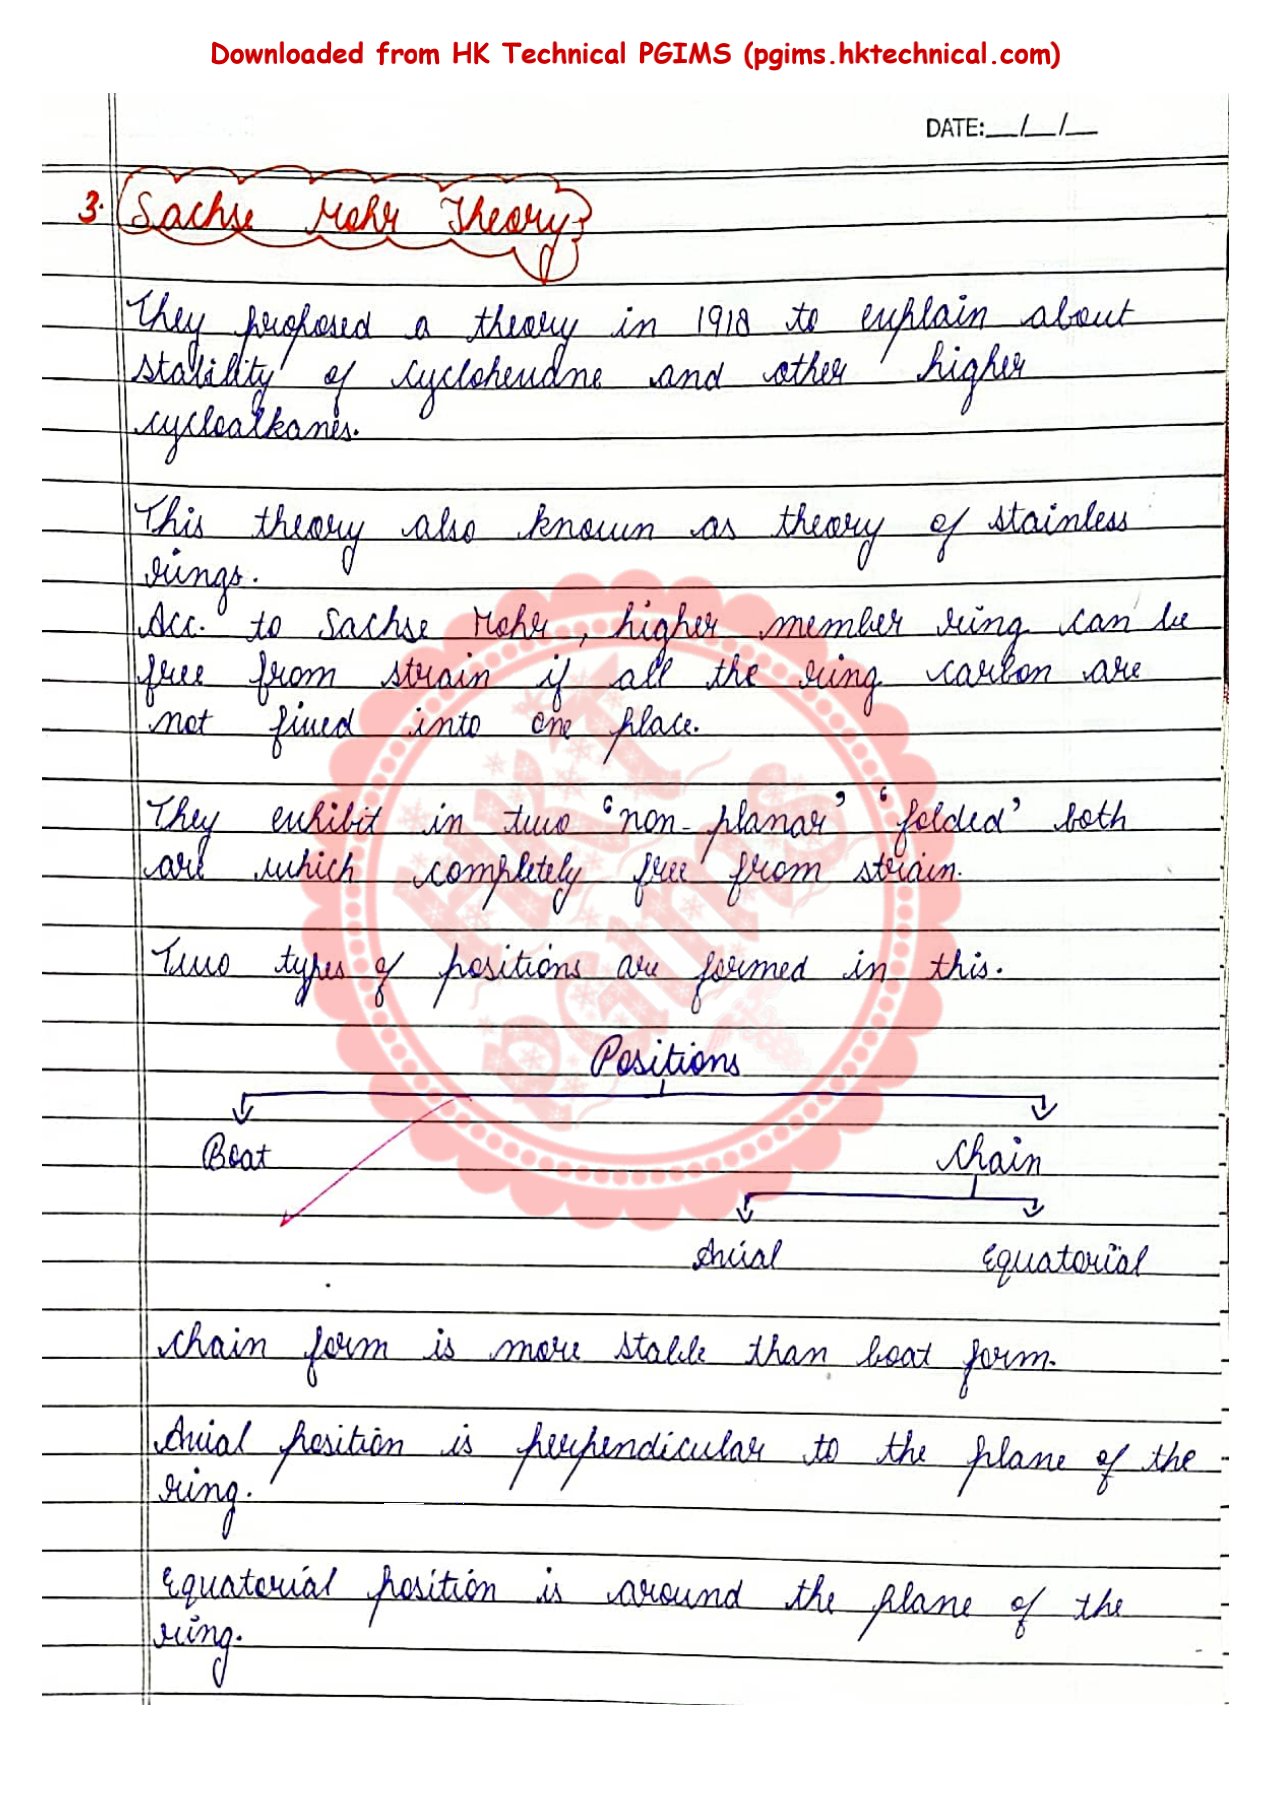 Downloaded from HK Technical PGIMS (pgims.hktechnical.com)
DATE:__/__/__
3. Sachse Mohr Theory
They proposed a theory in 1918 to explain about
stability of cyclohexane and other higher
cycloalkanes.
This theory also known as theory of stainless
rings.
Acc. to Sachse Mohr, higher member ring can be
free from strain if all the ring carbon are
not fixed into one place.
They exhibit in two 'non-planar' 'folded' both
are which completely free from strain.
Two types of positions are formed in this.
Positions
Boat Chain
Axial Equatorial
Chain form is more stable than boat form.
Axial position is perpendicular to the plane of the
ring.
Equatorial position is around the plane of the
ring.
HKT
PGIMS